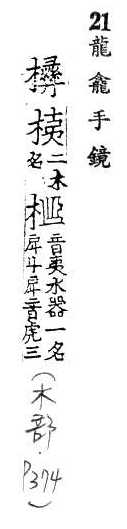 21 龍龕手鏡
桋二木名
音夷水器一名
戽斗戽音虎三
(木部·P374)